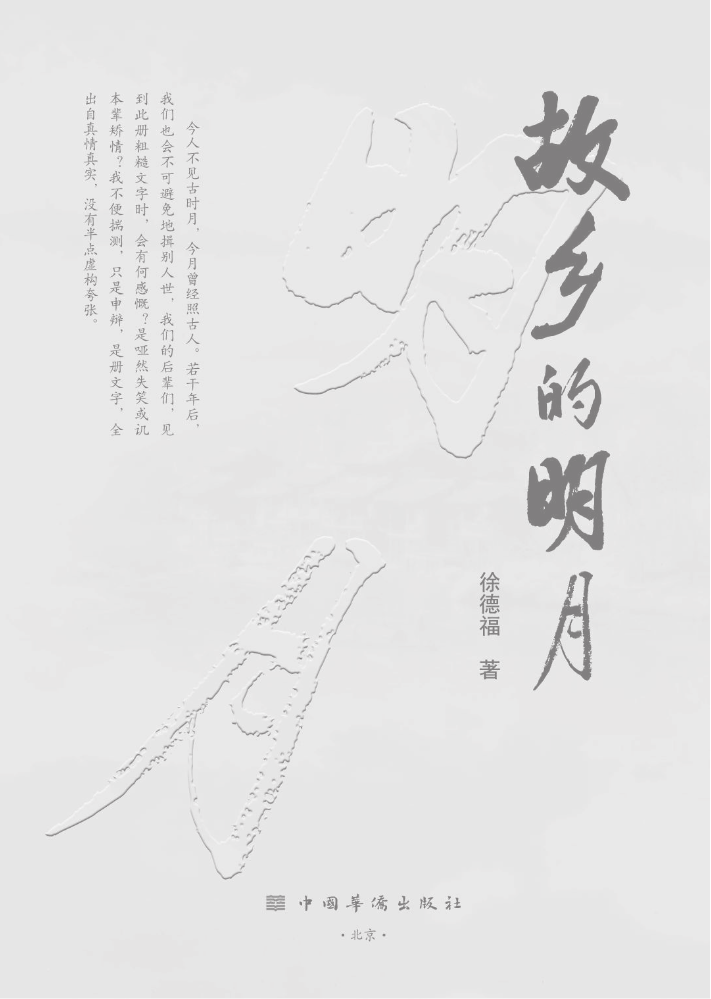 故乡的明月
徐德福 著
今人不见古时月，今月曾经照古人。若干年后，
我们也会不可避免地揖别人世，我们的后辈们，见
到此册粗糙文字时，会有何感慨？是哑然失笑或讥
本辈矫情？我不便揣测，只是申辩，是册文字，全
出自真情真实，没有半点虚构夸张。
明月
中國華僑出版社
·北京·